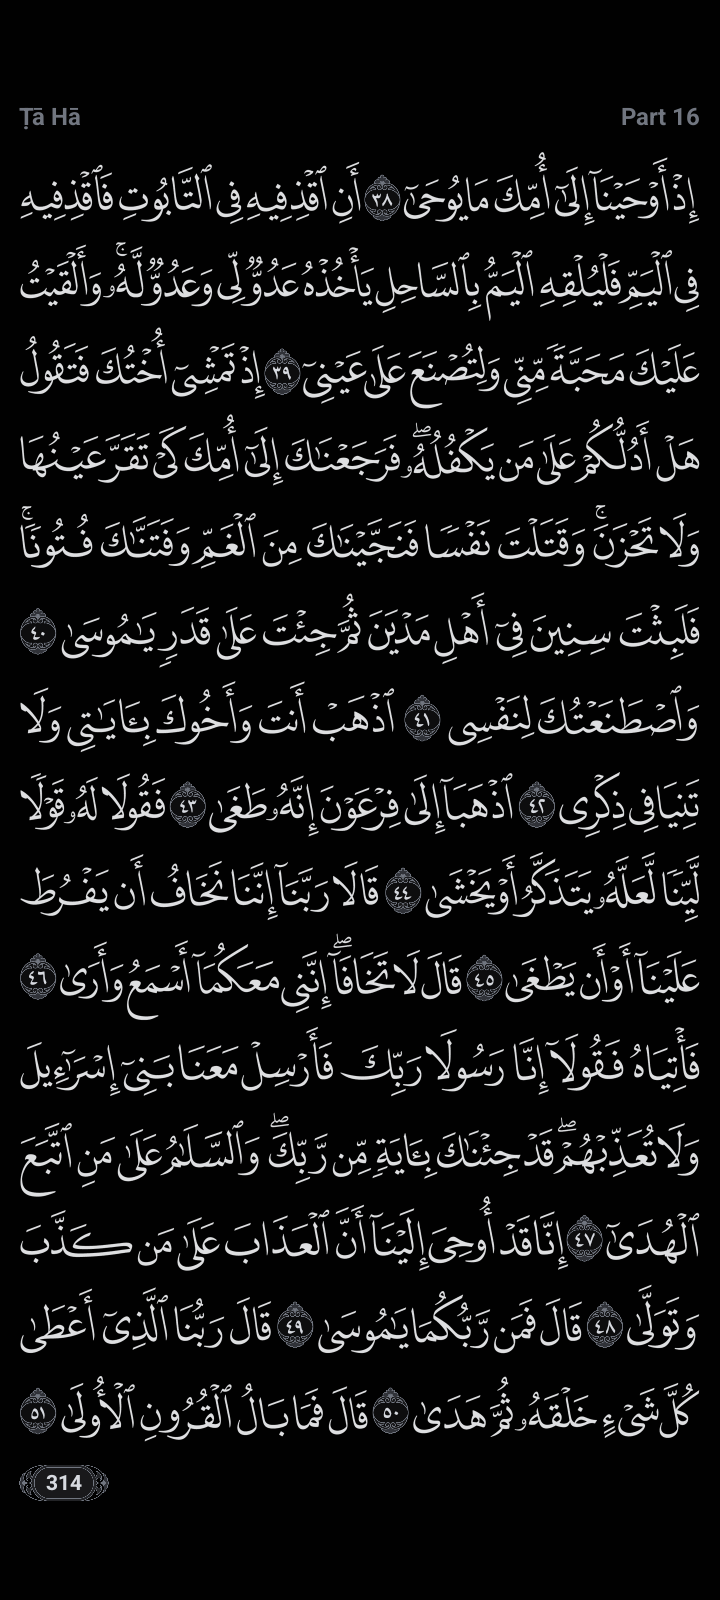 Ṭā Hā
Part 16
إِذۡ أَوۡحَيۡنَآ إِلَىٰٓ أُمِّكَ مَا يُوحَىٰٓ ٣٨ أَنِ ٱقۡذِفِيهِ فِي ٱلتَّابُوتِ فَٱقۡذِفِيهِ
فِي ٱلۡيَمِّ فَلۡيُلۡقِهِ ٱلۡيَمُّ بِٱلسَّاحِلِ يَأۡخُذۡهُ عَدُوّٞ لِّي وَعَدُوّٞ لَّهُۥۚ وَأَلۡقَيۡتُ
عَلَيۡكَ مَحَبَّةٗ مِّنِّي وَلِتُصۡنَعَ عَلَىٰ عَيۡنِيٓ ٣٩ إِذۡ تَمۡشِيٓ أُخۡتُكَ فَتَقُولُ
هَلۡ أَدُلُّكُمۡ عَلَىٰ مَن يَكۡفُلُهُۥۖ فَرَجَعۡنَٰكَ إِلَىٰٓ أُمِّكَ كَيۡ تَقَرَّ عَيۡنُهَا
وَلَا تَحۡزَنَۚ وَقَتَلۡتَ نَفۡسٗا فَنَجَّيۡنَٰكَ مِنَ ٱلۡغَمِّ وَفَتَنَّٰكَ فُتُونٗاۚ
فَلَبِثۡتَ سِنِينَ فِيٓ أَهۡلِ مَدۡيَنَ ثُمَّ جِئۡتَ عَلَىٰ قَدَرٖ يَٰمُوسَىٰ ٤٠
وَٱصۡطَنَعۡتُكَ لِنَفۡسِي ٤١ ٱذۡهَبۡ أَنتَ وَأَخُوكَ بِـَٔايَٰتِي وَلَا
تَنِيَا فِي ذِكۡرِي ٤٢ ٱذۡهَبَآ إِلَىٰ فِرۡعَوۡنَ إِنَّهُۥ طَغَىٰ ٤٣ فَقُولَا لَهُۥ قَوۡلٗا
لَّيِّنٗا لَّعَلَّهُۥ يَتَذَكَّرُ أَوۡ يَخۡشَىٰ ٤٤ قَالَا رَبَّنَآ إِنَّنَا نَخَافُ أَن يَفۡرُطَ
عَلَيۡنَآ أَوۡ أَن يَطۡغَىٰ ٤٥ قَالَ لَا تَخَافَآۖ إِنَّنِي مَعَكُمَآ أَسۡمَعُ وَأَرَىٰ ٤٦
فَأۡتِيَاهُ فَقُولَآ إِنَّا رَسُولَا رَبِّكَ فَأَرۡسِلۡ مَعَنَا بَنِيٓ إِسۡرَٰٓءِيلَ
وَلَا تُعَذِّبۡهُمۡۖ قَدۡ جِئۡنَٰكَ بِـَٔايَةٖ مِّن رَّبِّكَۖ وَٱلسَّلَٰمُ عَلَىٰ مَنِ ٱتَّبَعَ
ٱلۡهُدَىٰٓ ٤٧ إِنَّا قَدۡ أُوحِيَ إِلَيۡنَآ أَنَّ ٱلۡعَذَابَ عَلَىٰ مَن كَذَّبَ
وَتَوَلَّىٰ ٤٨ قَالَ فَمَن رَّبُّكُمَا يَٰمُوسَىٰ ٤٩ قَالَ رَبُّنَا ٱلَّذِيٓ أَعۡطَىٰ
كُلَّ شَيۡءٍ خَلۡقَهُۥ ثُمَّ هَدَىٰ ٥٠ قَالَ فَمَا بَالُ ٱلۡقُرُونِ ٱلۡأُولَىٰ ٥١
314